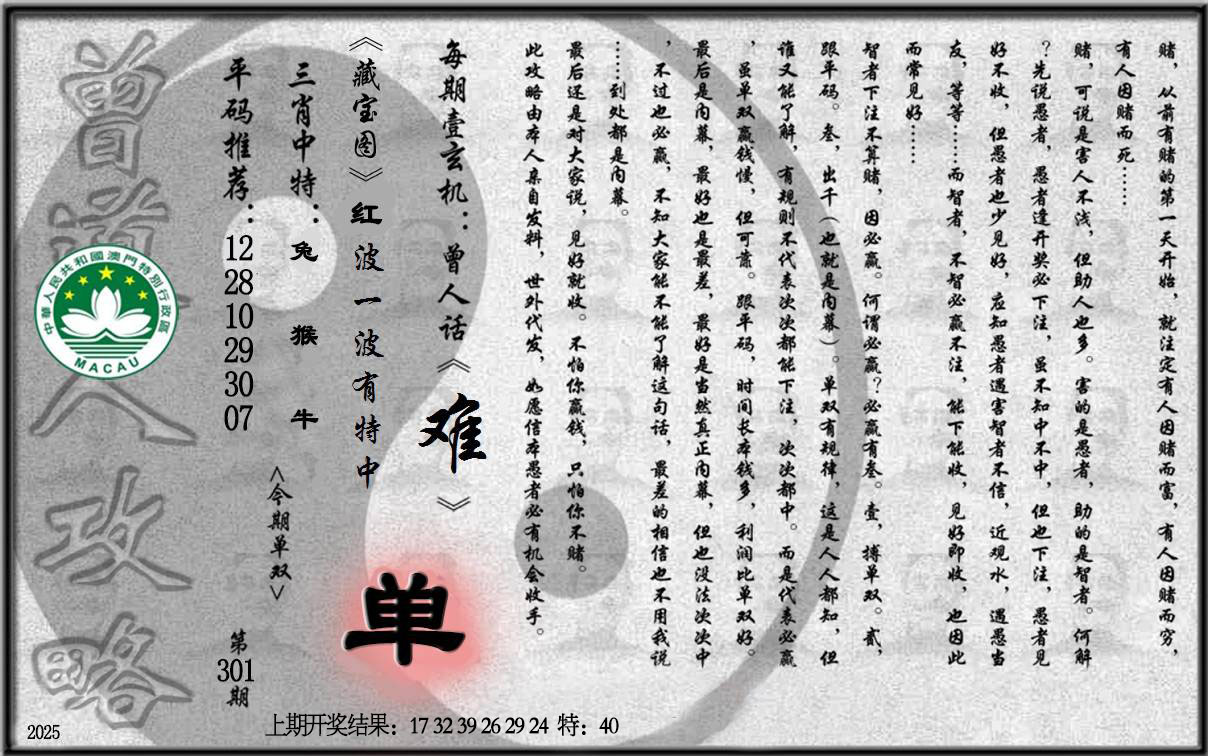 赌，从前有赌的第一天开始，就注定有人因赌而富，有人因赌而穷，
有人因赌而死……
赌，可说是害人不浅，但助人也多。害的是愚者，助的是智者。何解
？先说愚者，愚者逢开奖必下注，虽不知中不中，但也下注，愚者见
好不收，但愚者也少见好，应知愚者遇害智者不信，近观水，遇愚当
友，等等……而智者，不智必赢不注，能下能收，见好即收，也因此
而常见好……
智者下注不算赌，因必赢。何谓必赢？必赢有叁。壹，搏单双。贰，
跟平码。叁，出千（也就是内幕）。单双有规律，这是人人都知，但
谁又能了解，有规则不代表次次都能下注，次次都中。而是代表必赢
，虽单双赢钱慢，但可靠。跟平码，时间长本钱多，利润比单双好。
最后是内幕，最好也是最差，最好是当然真正内幕，但也没法次次中
，不过也必赢，不知大家能不能了解这句话，最差的相信也不用我说
……到处都是内幕。
最后还是对大家说，见好就收。不怕你赢钱，只怕你不赌。
此攻略由本人亲自发料，世外代发，如愿信本愚者必有机会收手。
每期壹玄机：曾人话《难》
《藏宝图》红波一波有特中
单
三肖中特：兔 猴 牛
<今期单双>
平码推荐：12 28 10 29 30 07
第301期
曾道人攻略
中華人民共和國澳門特別行政區
MACAU
2025
上期开奖结果：17 32 39 26 29 24 特：40